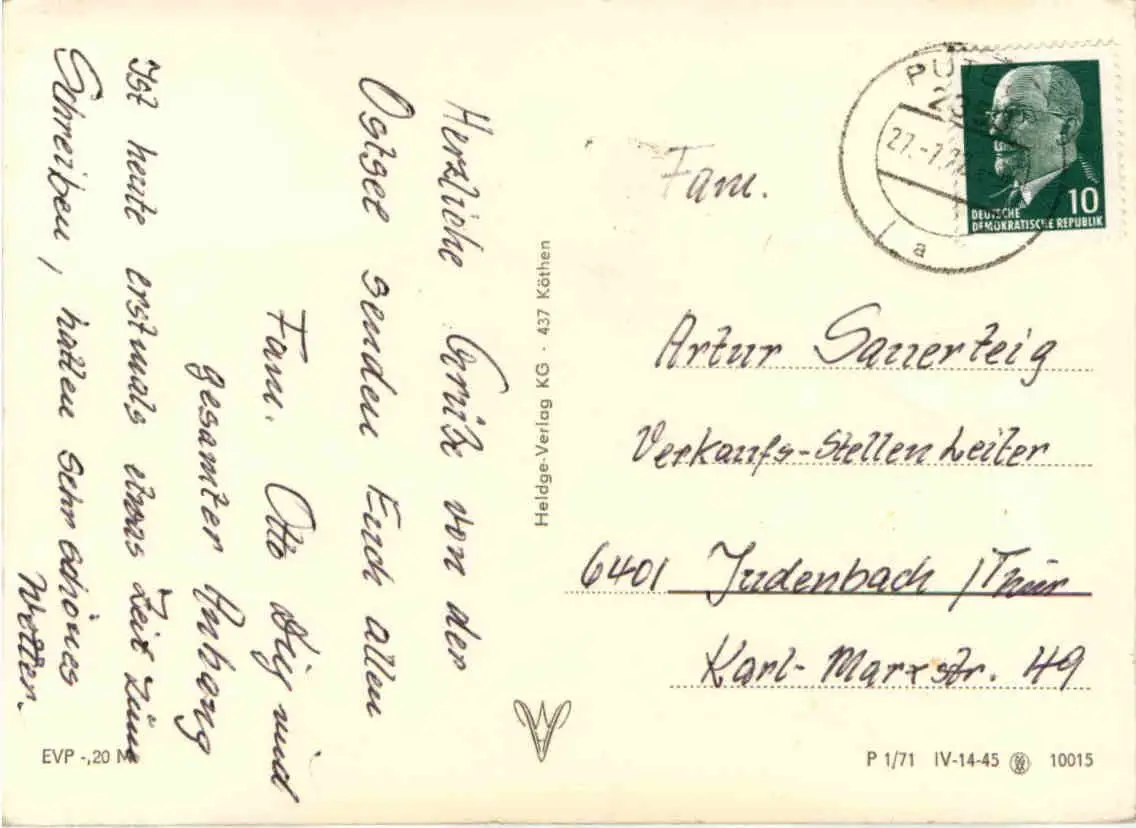 Herzliche Grüße von der
Ostsee senden Euch allen
Fam. Otto und
gesamter Anhang
Ist heute erstmals etwas Zeit zum
Schreiben, hatten sehr schönes
Wetter.
EVP -,20 M
Heldge-Verlag KG · 437 Köthen
PUT
27.-7.72
a
10
DEUTSCHE
DEMOKRATISCHE REPUBLIK
Fam.
Artur Sauerteig
Verkaufs-Stellenleiter
6401 Judenbach /Thür
Karl-Marxstr. 49
P 1/71 IV-14-45 10015